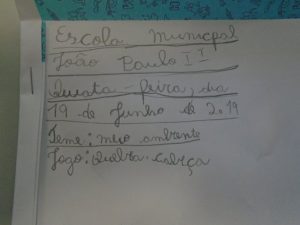 Escola municpal
João Paulo II
Quata-feira, dia
19 de Junho de 2.19
Teme: meio ambiente
Jogo: Quabra-cabiça